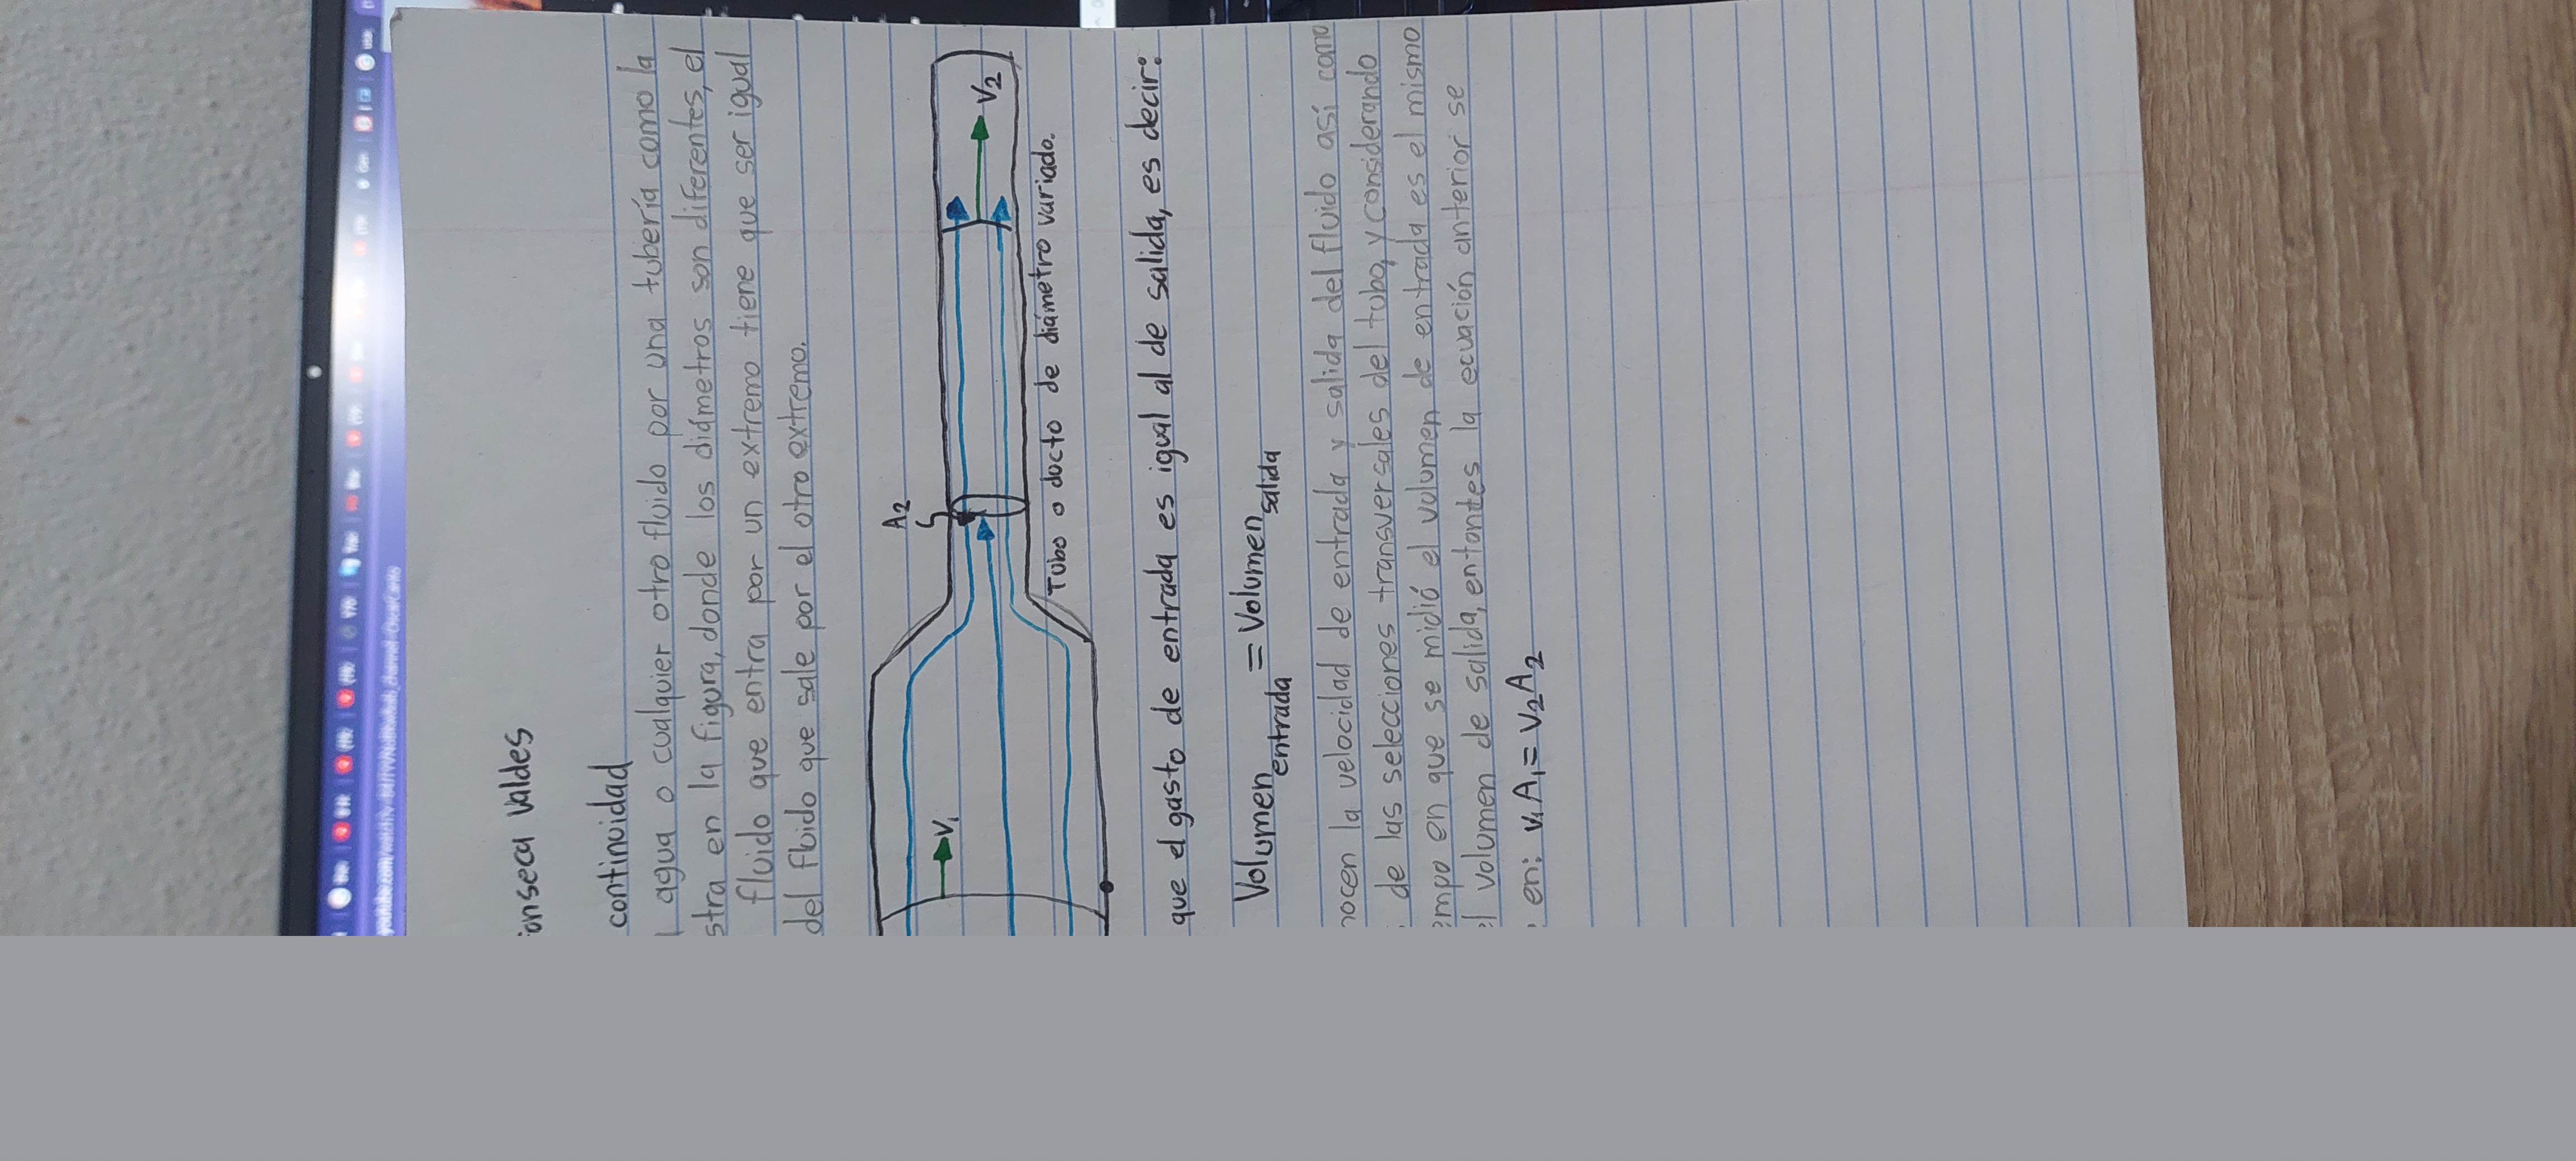 onseca valdes
continuidad
agua o cualquier otro fluido por una tubería como la
stra en la figura, donde los diámetros son diferentes, el
fluido que entra por un extremo tiene que ser igual
del fluido que sale por el otro extremo.
A2
V1
V2
Tubo o ducto de diámetro variado.
que el gasto de entrada es igual al de salida, es decir:
Volumen entrada = Volumen salida
nocen la velocidad de entrada y salida del fluido así como
de las selecciones transversales del tubo, y considerando
empo en que se midió el volumen de entrada es el mismo
el volumen de salida, entontes la ecuación anterior se
en: V1A1 = V2A2